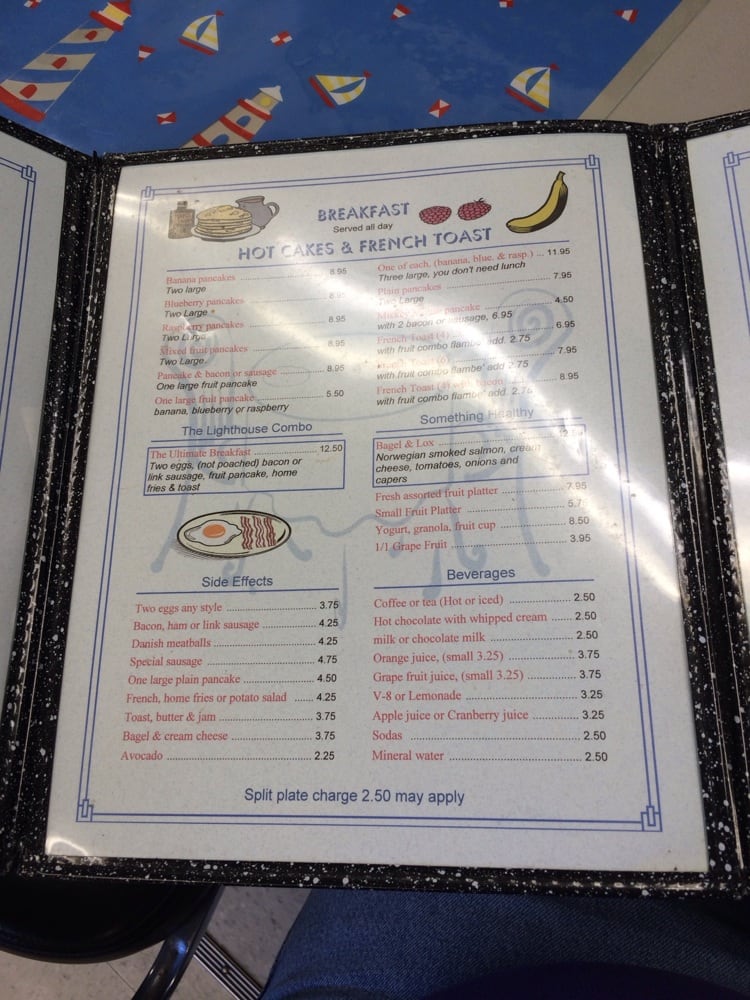 BREAKFAST
Served all day
HOT CAKES & FRENCH TOAST
Banana pancakes 8.95
Two large
Blueberry pancakes 8.95
Two Large
Raspberry pancakes 8.95
Two Large
Mixed fruit pancakes 8.95
Two Large
Pancake & bacon or sausage 8.95
One large fruit pancake
One large fruit pancake 5.50
banana, blueberry or raspberry
The Lighthouse Combo
The Ultimate Breakfast 12.50
Two eggs, (not poached) bacon or
link sausage, fruit pancake, home
fries & toast
Side Effects
Two eggs any style 3.75
Bacon, ham or link sausage 4.25
Danish meatballs 4.25
Special sausage 4.75
One large plain pancake 4.50
French, home fries or potato salad 4.25
Toast, butter & jam 3.75
Bagel & cream cheese 3.75
Avocado 2.25
One of each, (banana, blue. & rasp.) ... 11.95
Three large, you don't need lunch
Plain pancakes 7.95
Two Large
pancake 4.50
with 2 bacon or sausage, 6.95
French Toast (4) 6.95
with fruit combo flambe' add. 2.75
7.95
with fruit combo flambe' add 2.75
French Toast (4) bacon 8.95
with fruit combo flambe' add. 2.75
Something Healthy
Bagel & Lox
Norwegian smoked salmon, cream
cheese, tomatoes, onions and
capers
Fresh assorted fruit platter 7.95
Small Fruit Platter
Yogurt, granola, fruit cup 8.50
1/1 Grape Fruit 3.95
Beverages
Coffee or tea (Hot or iced) 2.50
Hot chocolate with whipped cream 2.50
milk or chocolate milk 2.50
Orange juice, (small 3.25) 3.75
Grape fruit juice, (small 3.25) 3.75
V-8 or Lemonade 3.25
Apple juice or Cranberry juice 3.25
Sodas 2.50
Mineral water 2.50
Split plate charge 2.50 may apply